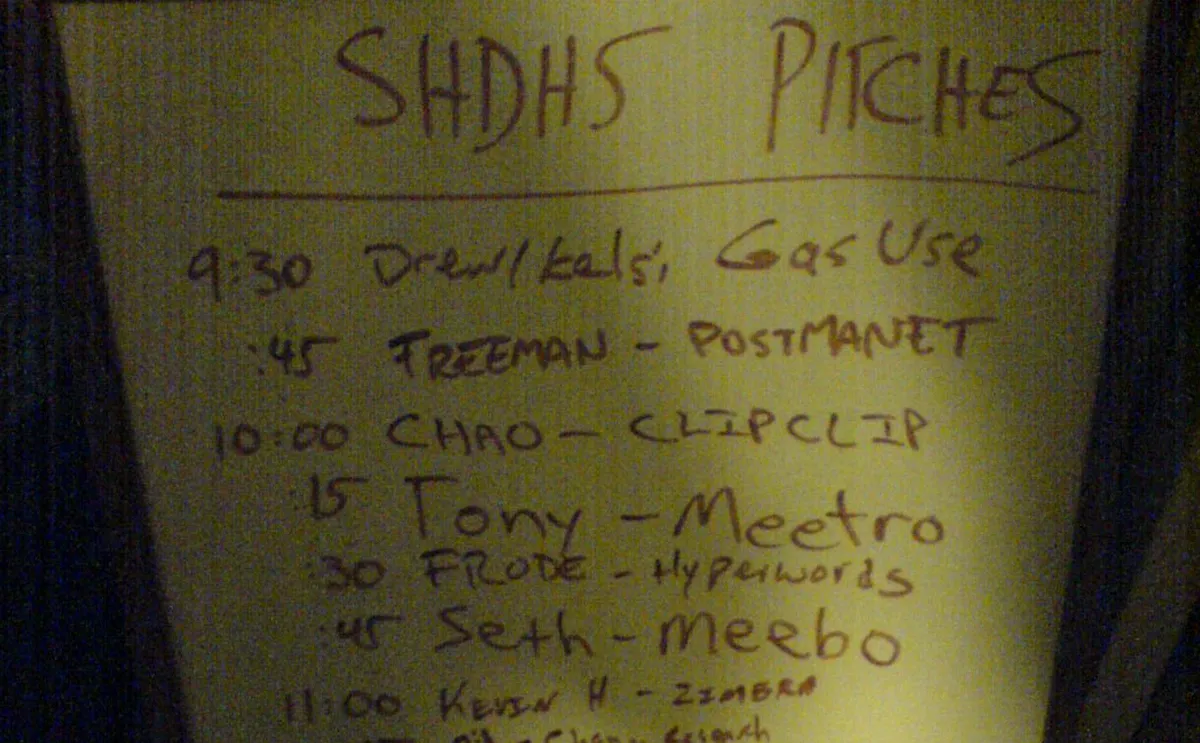 SHDH5 PITCHES
9:30 Drew/ Gas Use
:45 FREEMAN - POSTMANET
10:00 CHAO - CLIPCLIP
:15 Tony - Meetro
:30 FRODE - Hyperwords
:45 Seth - meebo
11:00 KEVIN H - ZIMBRA